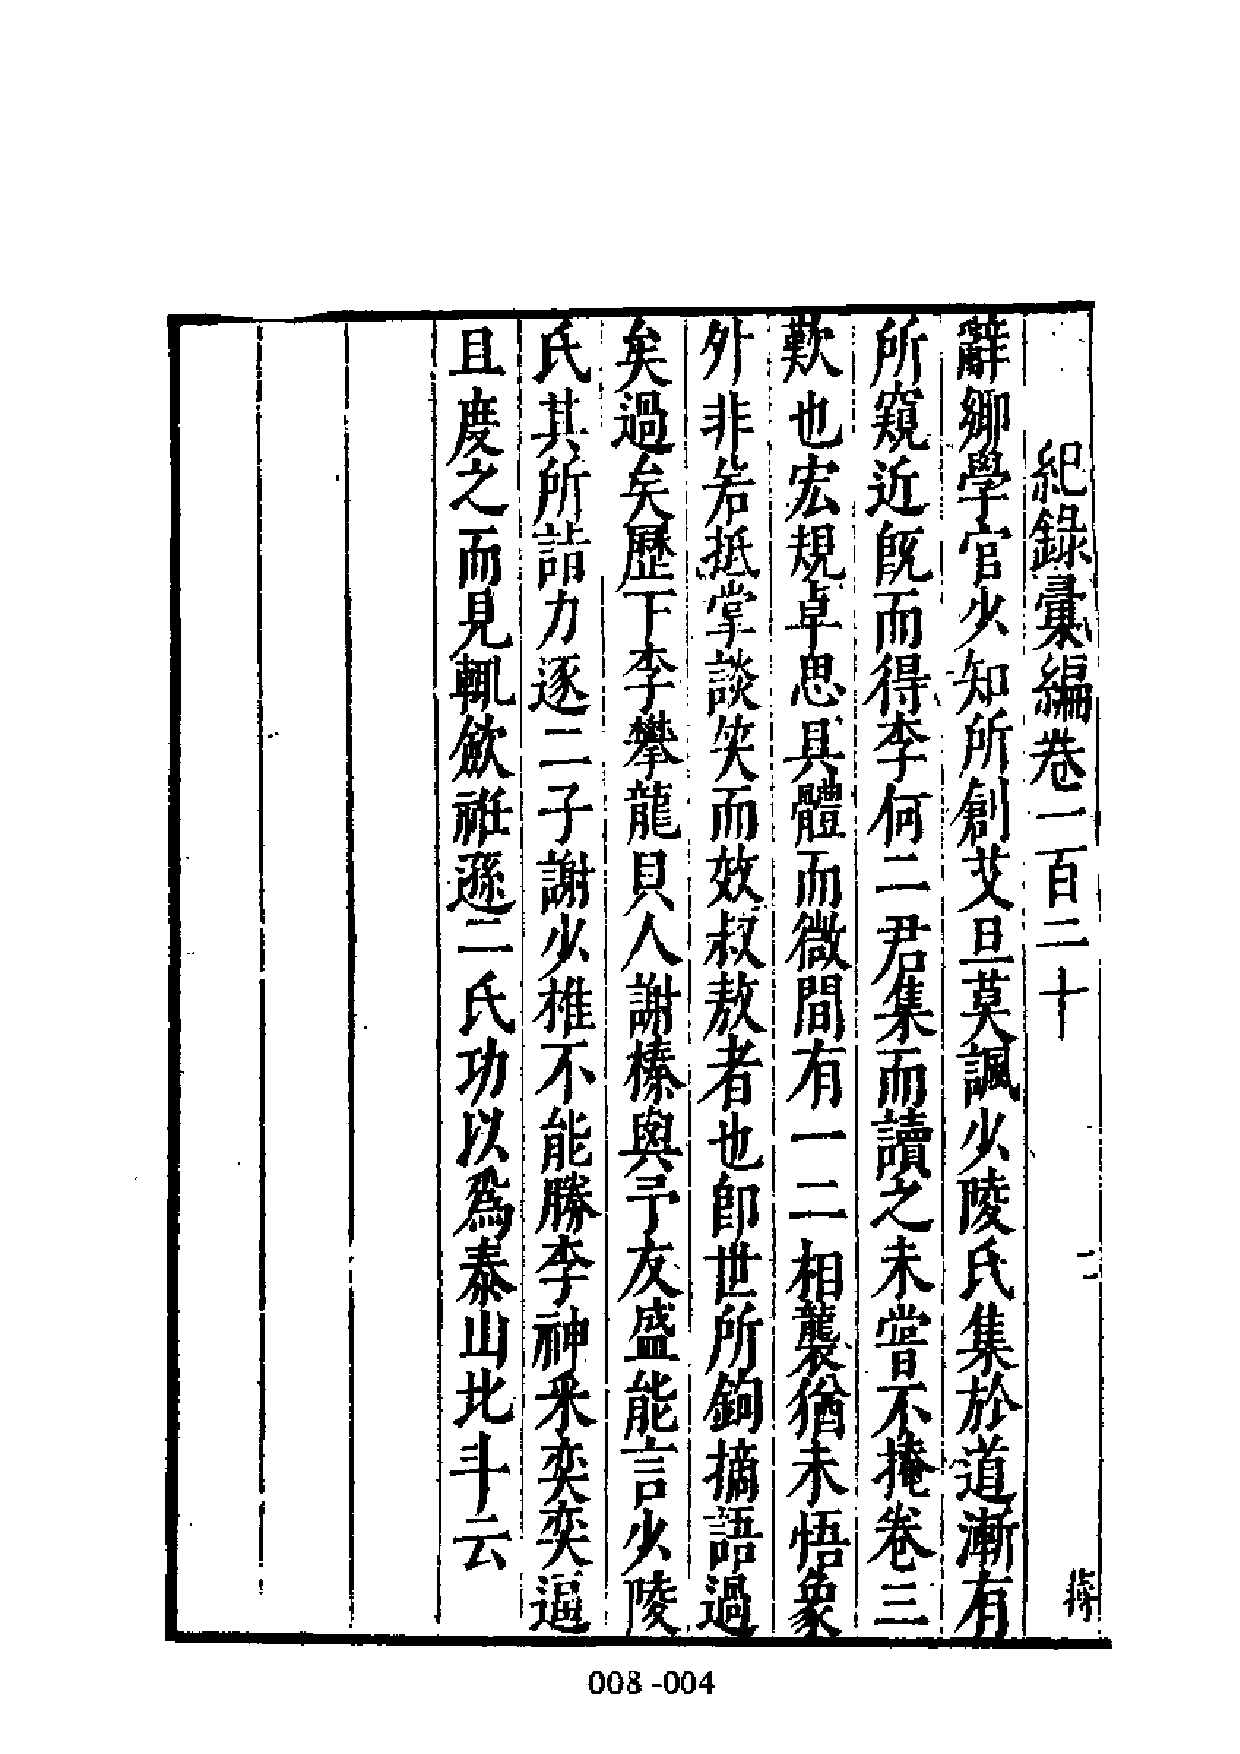 紀錄彙編卷一百二十 二
辭鄉學官少知所創艾旦莫諷少陵氏集於道漸有
所窺近旣而得李何二君集而讀之未嘗不掩卷三
歎也宏規卓思具體而微間有一二相襲猶未悟象
外非若抵掌談笑而效叔敖者也卽世所鉤摘語過
矣過矣歷下李攀龍貝人謝榛與予友盛能言少陵
氏其所詣力逐二子謝少椎不能勝李神釆奕奕逼
且度之而見輒歛袵遜二氏功以爲泰山北斗云
008 -004